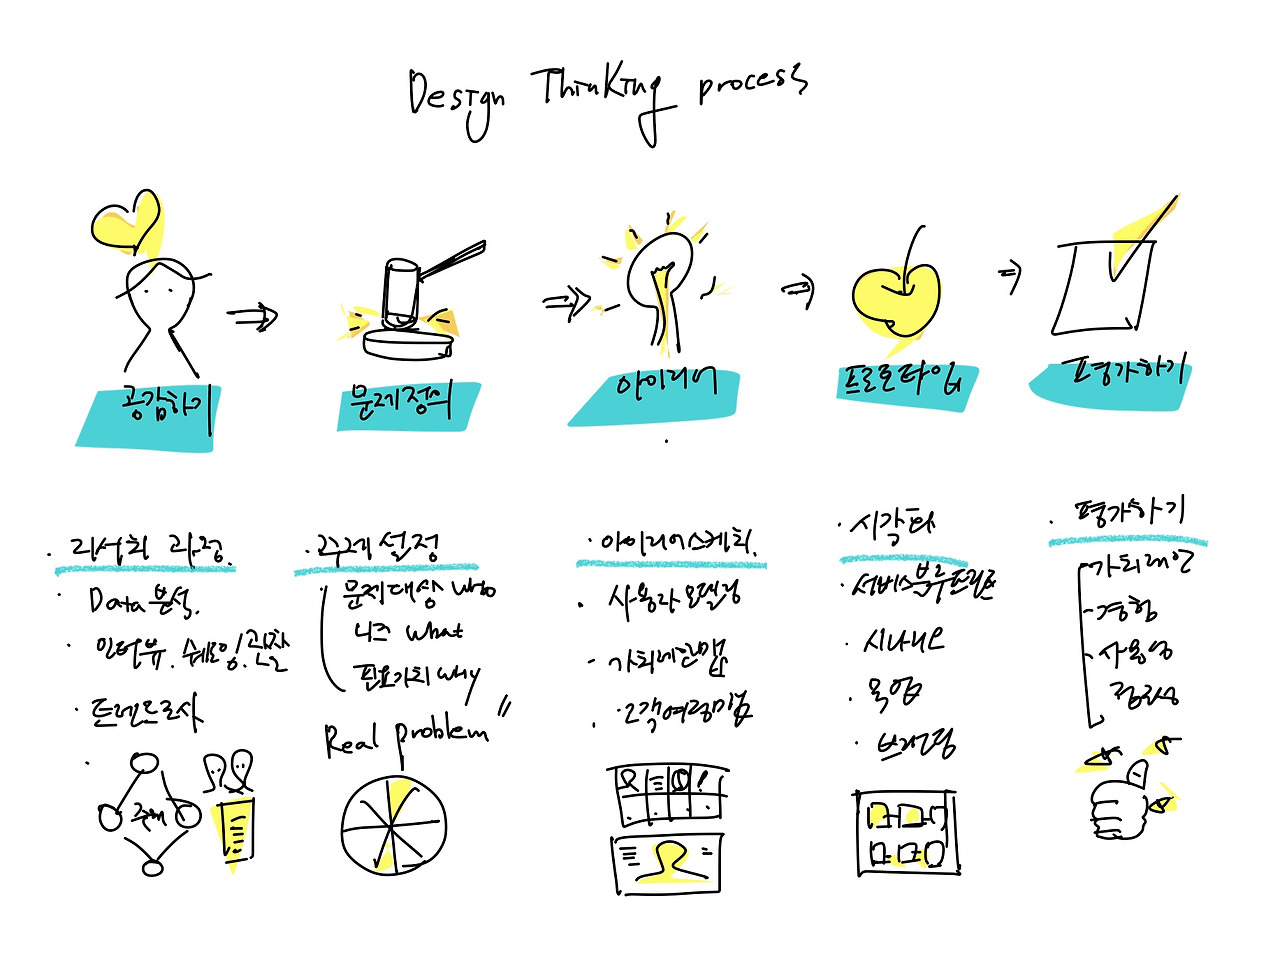 Design Thinking process
공감하기
문제정의
아이디어
프로토타입
평가하기
· 리서치 과정.
· Data 분석.
· 인터뷰. 쉐도잉/관찰
· 트렌드조사
주제
· 과제 설정
문제대상 who
니즈 what
필요가치 why
Real problem"
· 아이디어스케치.
· 사용자 모델링
- 가치제안맵
· 고객여정맵
· 시각화
· 서비스블루프린트
· 시나리오
· 목업
· 브랜딩
· 평가하기
가치제안
- 경험
- 사용성